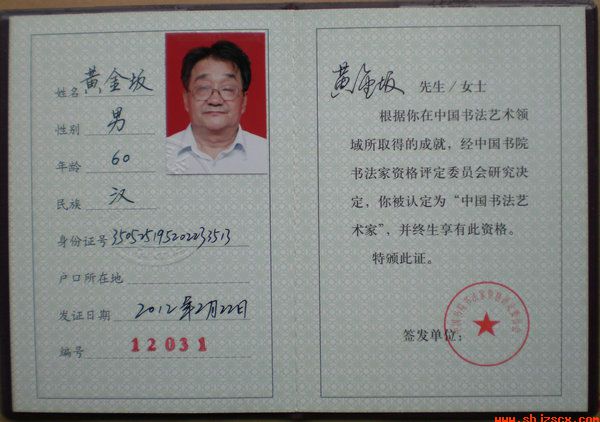 姓名 黄金坂
性别 男
年龄 60
民族 汉
身份证号 350525195202233513
户口所在地
发证日期 2012年2月22日
编号 12031
黄金坂 先生/女士
根据你在中国书法艺术领
域所取得的成就，经中国书院
书法家资格评定委员会研究决
定，你被认定为“中国书法艺
术家”，并终生享有此资格。
特颁此证。
签发单位：
www.shjzscx.com